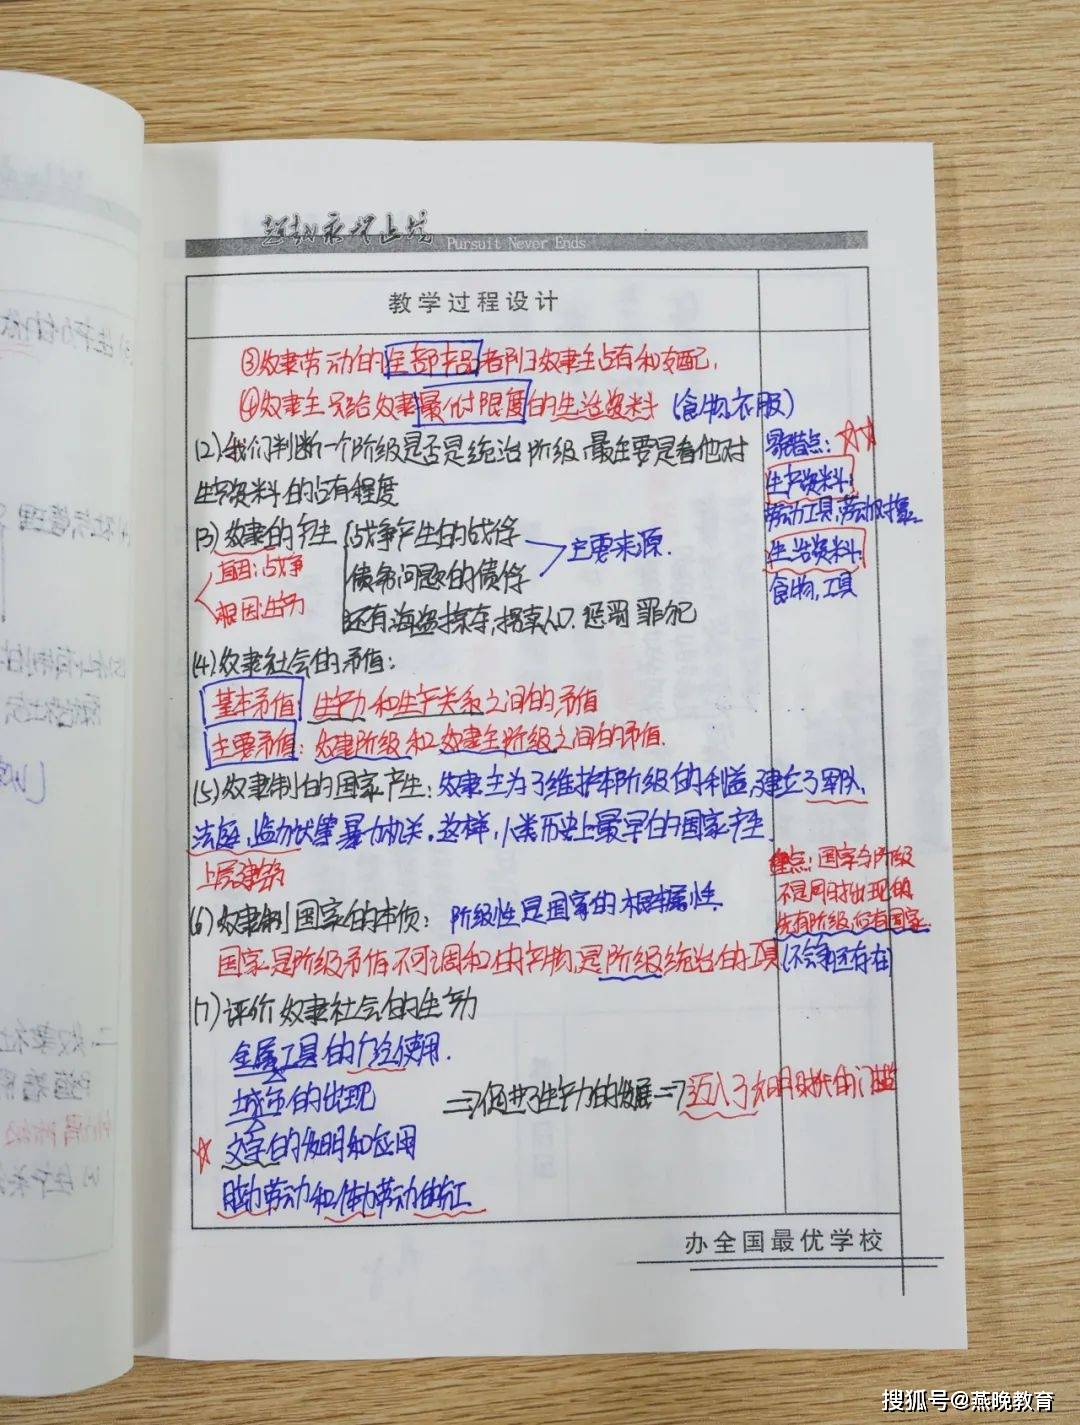 追求永无止境
Pursuit Never Ends
教学过程设计
③奴隶劳动的全部产品都归奴隶主占有和支配,
④奴隶主只给奴隶最低限度的生活资料 (食物,衣服)
(2)我们判断一个阶级是否是统治阶级,最主要是看他对
生产资料的占有程度
易错点: ☆☆
生产资料:
劳动工具,劳动对象
生活资料:
食物,工具
(3)奴隶的产生
直因:战争
根因:生产力
战争产生的战俘
债务问题的债俘
主要来源.
还有海盗掠夺,拐卖人口.惩罚罪犯
(4)奴隶社会的矛盾:
基本矛盾: 生产力和生产关系之间的矛盾
主要矛盾: 奴隶阶级和奴隶主阶级之间的矛盾.
(5)奴隶制的国家产生:奴隶主为了维护本阶级的利益,建立了军队,
法庭,监狱等暴力机关.这样,人类历史上最早的国家产生.
上层建筑
(6)奴隶制国家的本质: 阶级性是国家的根本属性.
国家是阶级矛盾不可调和的产物,是阶级统治的工具
重点:国家与阶级
不是同时出现的
先有阶级,后有国家.
(7)评价奴隶社会的生产力
金属工具的广泛使用.
城市的出现
☆ 文字的发明和应用
脑力劳动和体力劳动的分工
⇒促进了生产力的发展⇒迈入了文明时代的门槛
办全国最优学校
搜狐号@燕晚教育